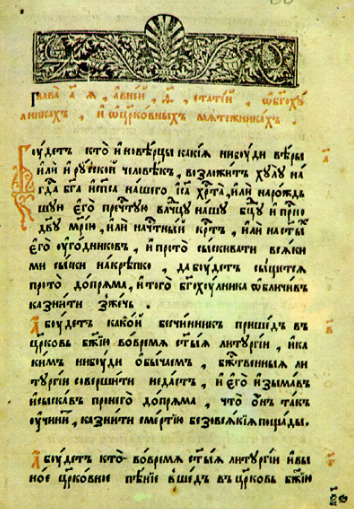 Глава а҃ я, а в ней, ѳ҃, статей, ѡ бг҃оху
лникахъ, и ѡ цр҃ковныхъ мятежникахъ.
Боудетъ кто иновѣрцы какия нибоуди вѣры
или и русской человѣкъ, возложитъ хулу на
гд҃а бг҃а и сп҃са нашего іс҃а хрт҃а, или на рожд
шую его преч҃тую влчц҃у нашу бц҃у и прно
дв҃у мр҃ию, или на ч҃тный крт҃ъ, или на ст҃ых
его оугодниковъ, и про то сыскивати всяки
ми сыски накрѣпко, да боудетъ сыщется
про то допряма, и того бг҃охоулника ѡбличивъ
казнити зжечь.
а҃
А боудетъ какой безчинникъ пришедъ в
цр҃ковь бж҃ию во время ст҃ыя литургии, и ка
кимъ нибоуди ѡбычаемъ, бж҃твенныя ли
тургии совершити недастъ, и его изымавъ
и сыскавъ про него допряма, что онъ такъ
оучинитъ, казнити смертию безовсякия пощады.
в҃
А боудетъ кто во время ст҃ыя литургии и в ы
ное цр҃ковное пѣние вшедъ въ цр҃ковь бж҃ию